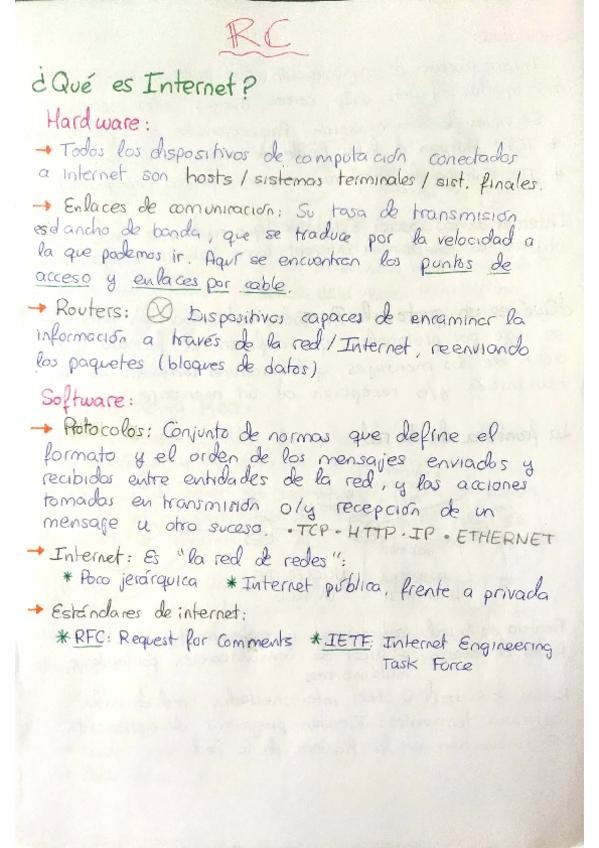 RC
¿Qué es Internet?
Hardware:
→ Todos los dispositivos de computación conectados
a Internet son hosts / sistemas terminales / sist. finales.
→ Enlaces de comunicación: Su tasa de transmisión
es el ancho de banda, que se traduce por la velocidad a
la que podemos ir. Aquí se encuentran los puntos de
acceso y enlaces por cable.
→ Routers: Dispositivos capaces de encaminar la
información a través de la red / Internet, reenviando
los paquetes (bloques de datos)
Software:
→ Protocolos: Conjunto de normas que define el
formato y el orden de los mensajes enviados y
recibidos entre entidades de la red, y las acciones
tomadas en transmisión o/y recepción de un
mensaje u otro suceso. • TCP • HTTP • IP • ETHERNET
→ Internet: Es "la red de redes":
* Poco jerárquica * Internet pública, frente a privada
→ Estándares de internet:
* RFC: Request for Comments * IETF: Internet Engineering
Task Force